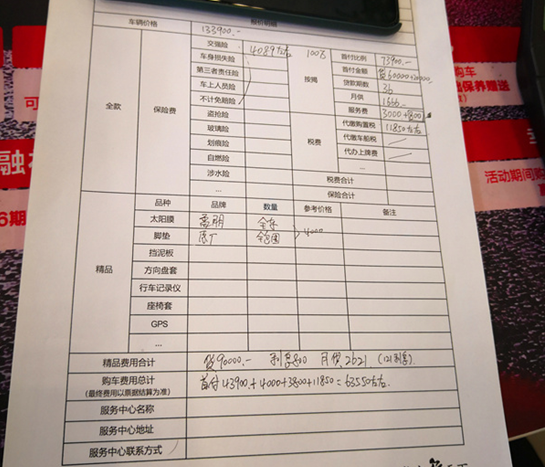 报价明细
车辆价格 133900.-
全款
保险费
交强险 4089左右
车身损失险
第三者责任险
车上人员险
不计免赔险
盗抢险
玻璃险
划痕险
自燃险
涉水险
...
100万
按揭
首付比例 73900.-
首付金额 贷60000
贷款期数 36
月供 1666.-
服务费 3000+800
税费
代缴购置税 11850左右
代缴车船税
代办上牌费
税费合计
保险合计
精品
品种 品牌 数量 参考价格 备注
太阳膜 全车
脚垫 原厂 全包围 4000
挡泥板
方向盘套
行车记录仪
座椅套
GPS
...
精品费用合计 贷90000.- 月供2621
购车费用总计 首付43900.+4000+3800+11850=63550左右
(最终费用以票据结算为准)
服务中心名称
服务中心地址
服务中心联系方式
购车
出保养赠送
可
融
6期
活动期间购